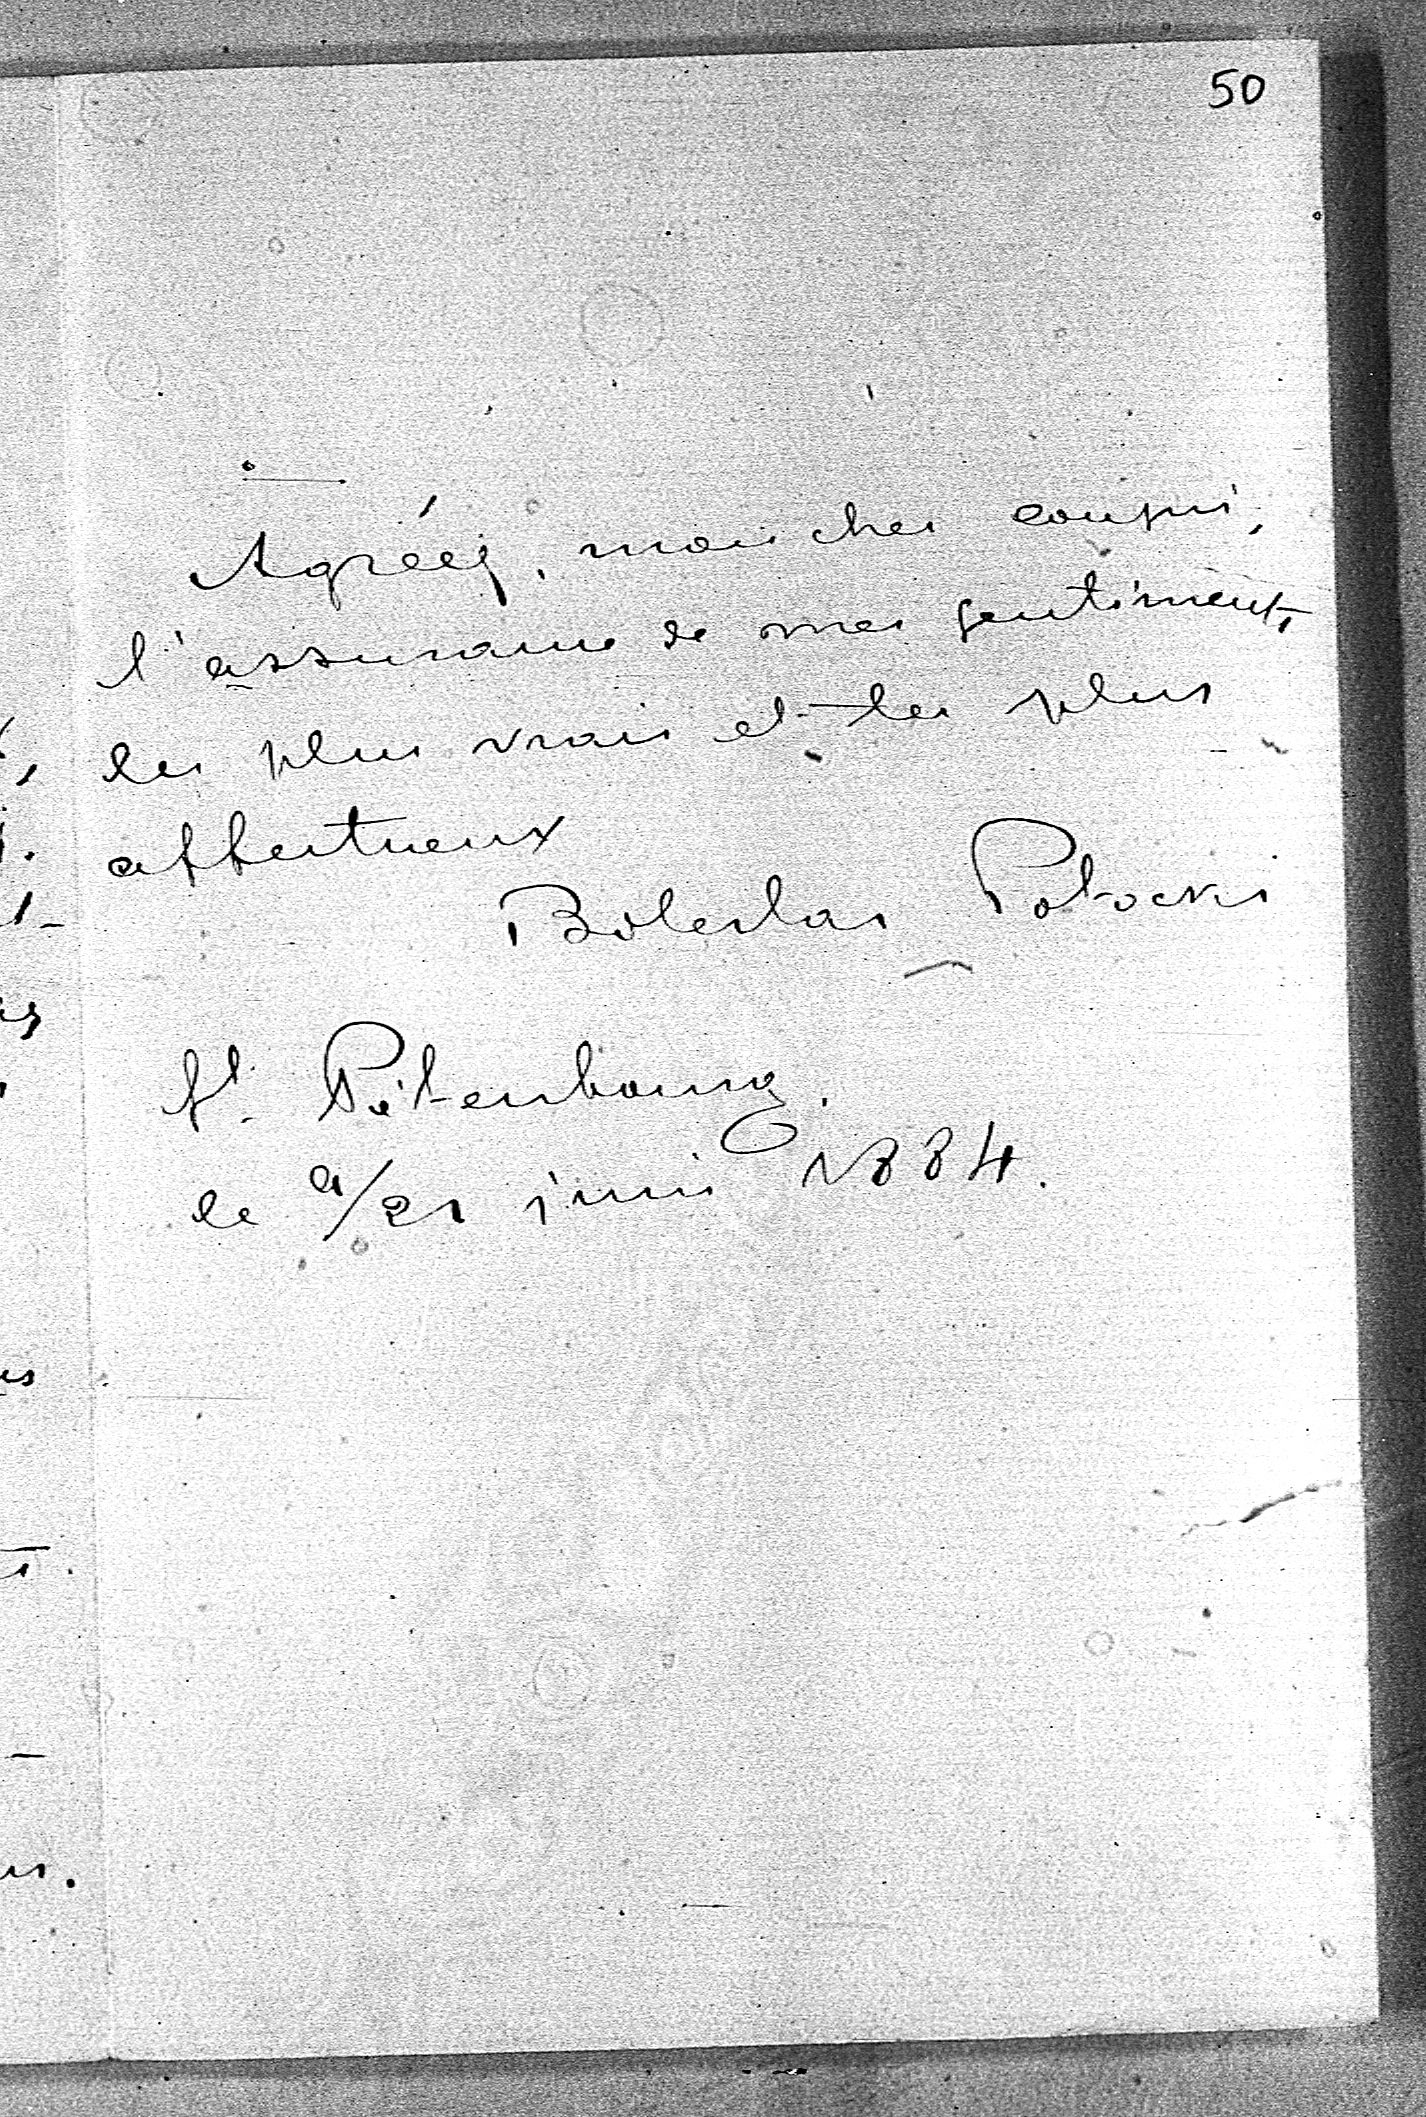 50
Agréez, mon cher cousin,
l'assurance de mes sentiments
les plus vrais et les plus
affectueux
Boleslas Potocki
St. Pétersbourg.
le 9/21 juin 1884.